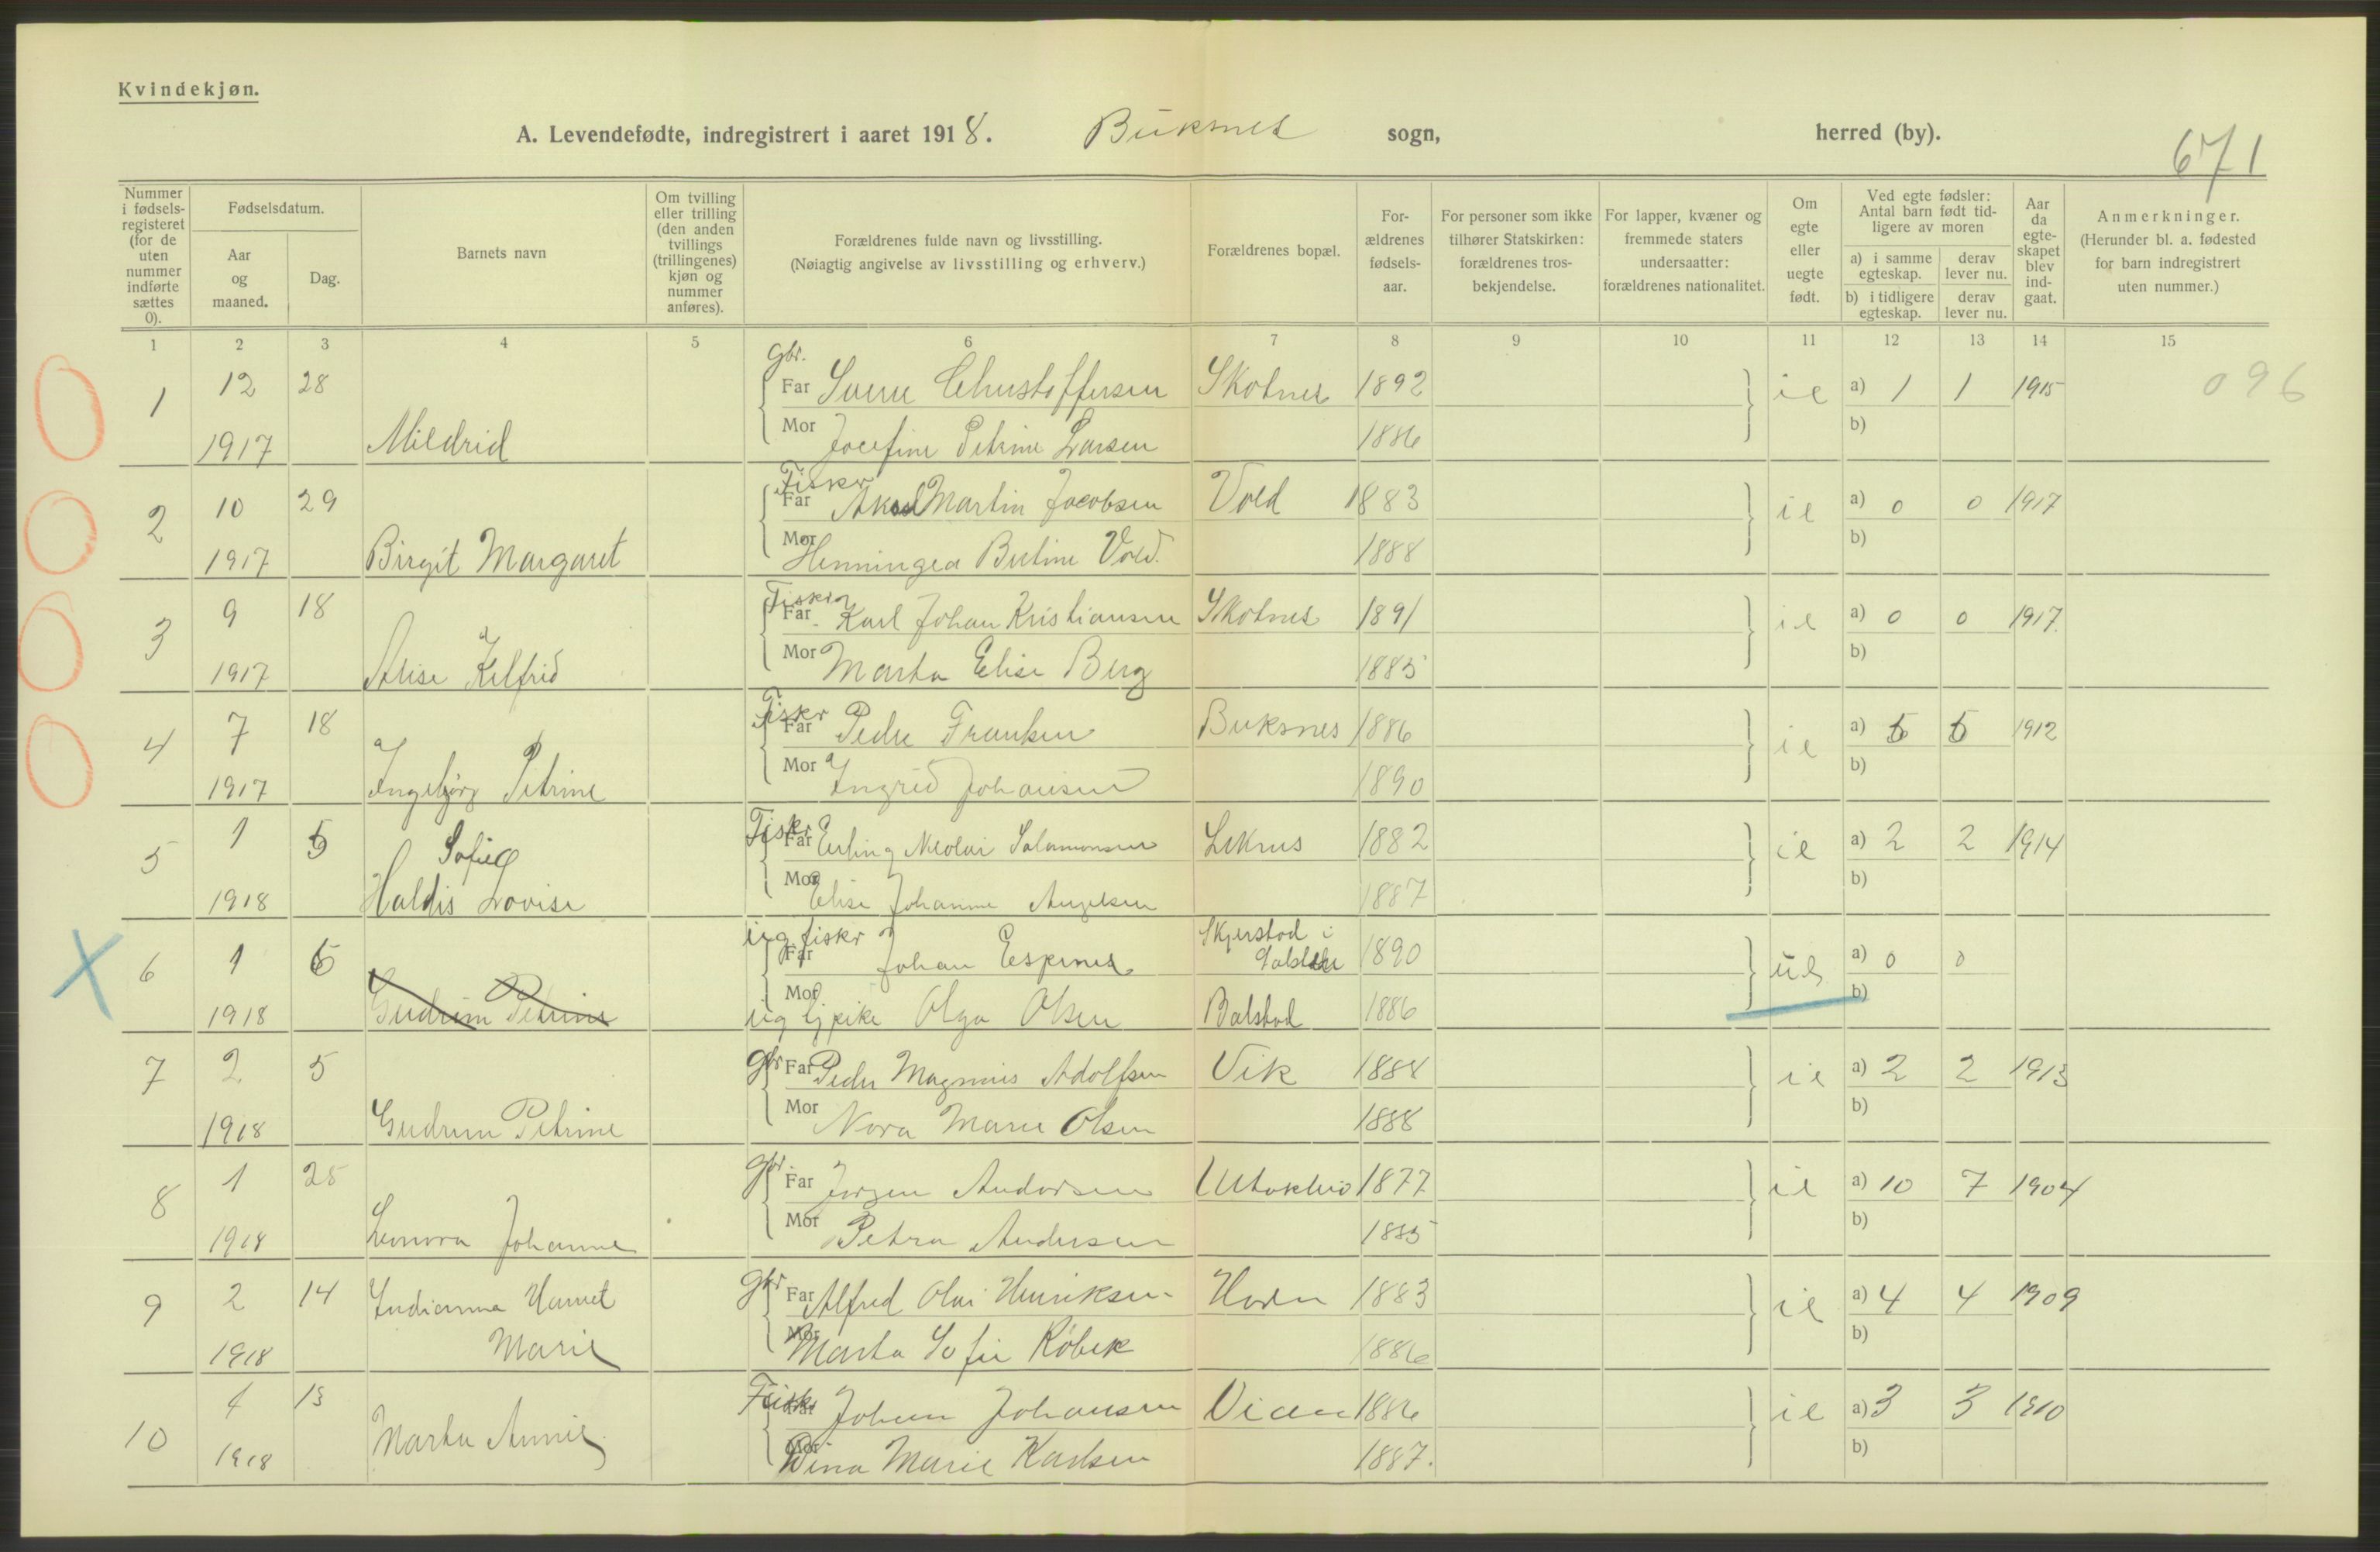 Kvindekjøn.
A. Levendefødte, indregistrert i aaret 1918. Buksnes sogn, herred (by).
671
Nummer i fødsels-registeret (for de uten nummer indførte sættes 0).
Fødselsdatum.
Aar og maaned.
Dag.
Barnets navn
Om tvilling eller trilling (den anden tvillings (trillingenes) kjøn og nummer anføres).
Forældrenes fulde navn og livsstilling.
(Nøiagtig angivelse av livsstilling og erhverv.)
Forældrenes bopæl.
For-ældrenes fødsels-aar.
For personer som ikke tilhører Statskirken: forældrenes tros-bekjendelse.
For lapper, kvæner og fremmede staters undersaatter: forældrenes nationalitet.
Om egte eller uegte født.
Ved egte fødsler: Antal barn født tid-ligere av moren
a) i samme egteskap.
derav lever nu.
b) i tidligere egteskap.
derav lever nu.
Aar da egte-skapet blev ind-gaat.
Anmerkninger.
(Herunder bl. a. fødested for barn indregistrert uten nummer.)
1 2 3 4 5 6 7 8 9 10 11 12 13 14 15
Gbr.
1 12 28 Far Sverre Christoffersen Skotnes 1892 ie a) 1 1 1915 096
1917 Mildrid Mor Josefine Petrine Larsen 1886 b)
Fisker
2 10 29 Far Aksel Martin Jacobsen Vold 1883 ie a) 0 0 1917
1917 Birgit Margaret Mor Henningea Bertine Vold. 1888 b)
Fisker
3 9 18 Far Karl Johan Kristiansen Skotnes 1891 ie a) 0 0 1917.
1917 Alise Kelfrid Mor Marta Elise Berg 1885 b)
Fisker
4 7 18 Far Peder Frantsen Buksnes 1886 ie a) 5 5 1912
1917 Ingebjørg Petrine Mor Ingrid Johansen 1890 b)
Fisker
5 1 5 Sofie Far Erling Nicolai Salamonsen Leknes 1882 ie a) 2 2 1914
1918 Haldis Lovise Mor Elise Johanne Angelsen 1887 b)
ug fisker Skjerstad i
6 1 6 Far Johan Espenes 1890 ue a) 0 0
1918 Gudrun Petrine Mor ug tj pike Olga Olsen Balstad 1886 b)
7 2 5 Gbr Far Peder Magnus Adolfsen Vik 1884 ie a) 2 2 1913
1918 Gudrun Petrine Mor Nora Marie Olsen 1888 b)
Gbr.
8 1 25 Far Jørgen Andersen 1877 ie a) 10 7 1904
1918 Leonora Johanne Mor Petra Andersen 1885 b)
9 2 14 Indianna Harriet Gbr Far Alfred Olai Henriksen Horn 1883 ie a) 4 4 1909
1918 Marie Mor Marta Sofie Røbek 1886 b)
Fisker
10 4 13 Far Johan Johansen 1886 ie a) 3 3 1910
1918 Marta Annie Mor Dina Marie Karlsen 1887. b)